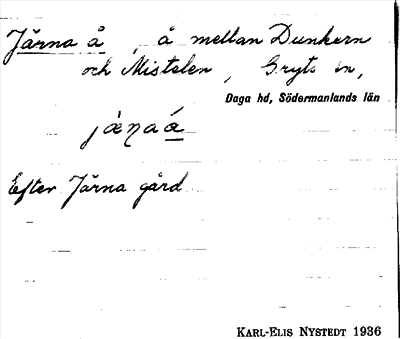 Järna å, å mellan Dunkern
och Mistelen, Gryts sn,
Daga hd, Södermanlands län
Efter Järna gård
KARL-ELIS NYSTEDT 1936